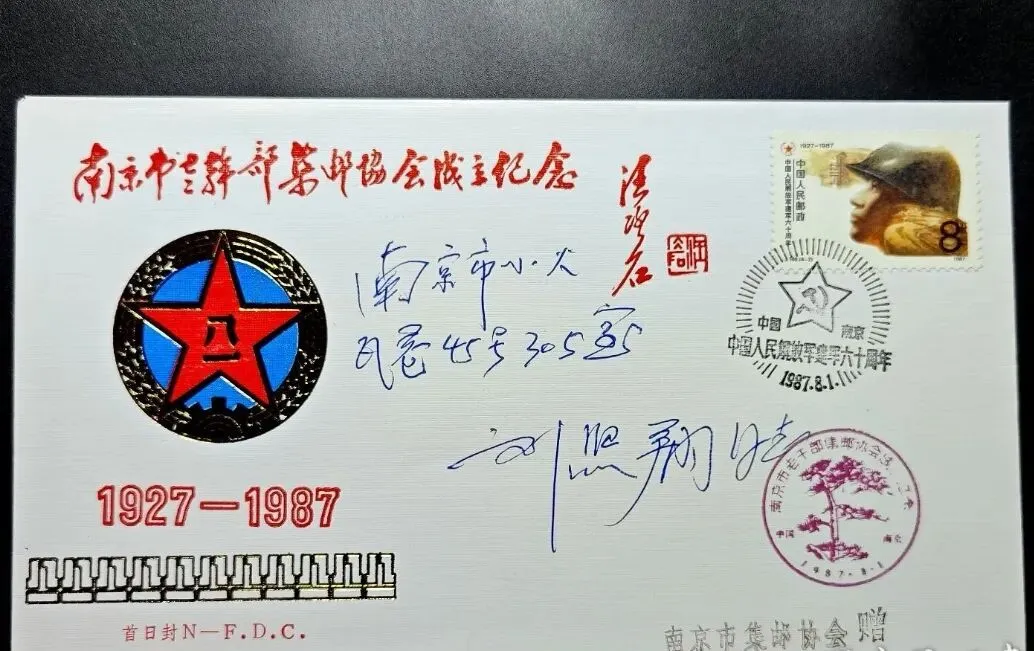 南京市老干部集邮协会成立纪念
1927-1987
中国人民邮政
中国人民解放军建军六十周年
8
1987
八一
南京市小火
瓦巷45号305室
刘照翔
中國 南京
中国人民解放军建军六十周年
1987.8.1.
南京市老干部集邮协会成
中国 南京
1987.8.1
1927—1987
首日封N—F.D.C.
南京市集邮协会 赠